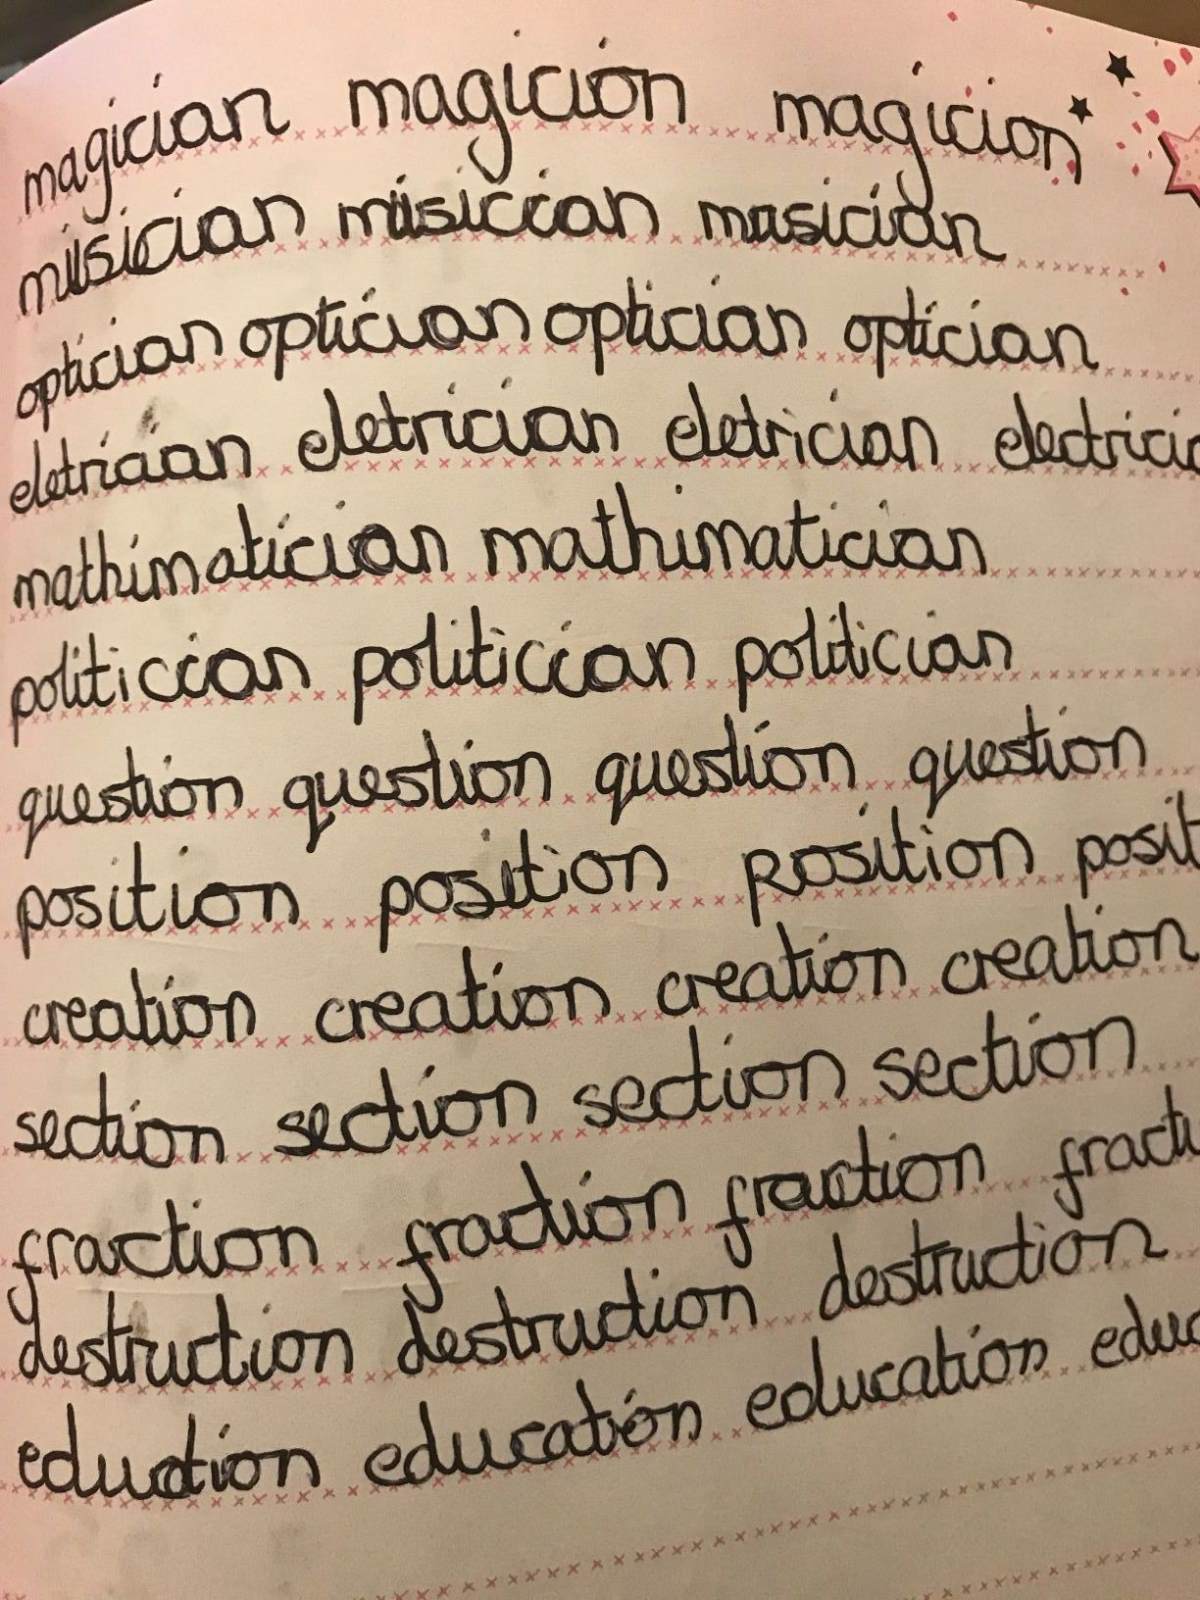 magician magicion magicion
musician musician musician
optician optician optician optician
eletrician eletrician eletrician electricia
mathimatician mathimatician
politician politician politician
question question question question
position position position posit
creation creation creation creation
section section section section
fraction fraction fraction fracti
destruction destruction destruction
eduction education education educ